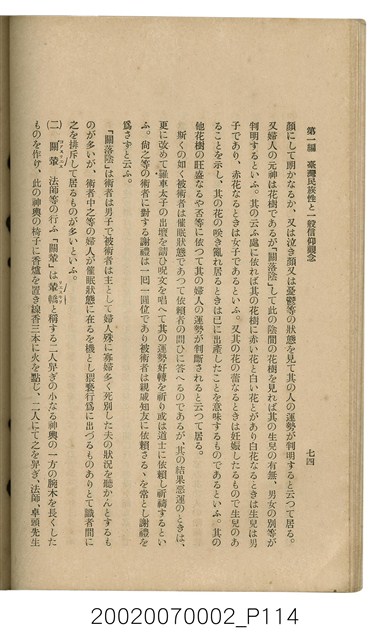 第一編　臺灣民族性と一般信仰觀念　　七四
顏にして明かなるか、又は泣き顏又は憂鬱等の狀態を見て其の人の運勢が判明すると云つて居る。
又婦人の元神は花樹であるが「關落陰」して此の陰間の花樹を見れば其の生兒の有無、男女の別等が
判明するといふ。其の云ふ處に依れば其の花樹に赤い花と白い花とがあり白花なるときは生兒は男
子であり、赤花なるときは女子であるといふ。又其の花の蕾なるときは妊娠したるもので生兒のあ
ることを示し、其の花の咲き亂れ居るときは已に出產したことを意味するものであるといふ。其の
他花樹の旺盛なるや否等に依つて其の婦人の運勢が判斷されると云つて居る。
斯くの如く被術者は催眠狀態であつて依賴者の問ひに答へるのであるが、其の結果惡運のときは、
更に改めて羅車太子の出壇を請ひ呪文を唱へて其の運勢好轉を祈り或は道士に依賴し祈禱するとい
ふ。尙之等の術者に對する謝禮は一囘一圓位であり被術者は親戚知友に依賴さるゝを常とし謝禮を
爲さずと云ふ。
「關落陰」は術者は男子で被術者は主として婦人殊に寡婦多く死別した夫の狀況を聽かんとするも
のが多いが、術者中之等の婦人が催眠狀態に在るを機とし猥褻行爲に出づるものありとて識者間に
之を排斥して居るものが多いといふ。
(二)　關輦　法師等の行ふ「關輦」は輦轎と稱する二人舁ぎの小なる神輿の一方の腕木を長くした
ものを作り、此の神輿の椅子に香爐を置き線香三本に火を點じ、二人にて之を舁ぎ、法師、卓頭先生
20020070002_P114